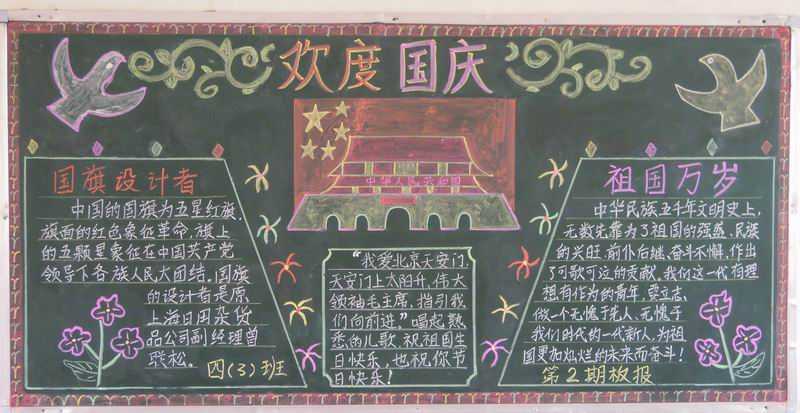 欢度国庆
国旗设计者
中国的国旗为五星红旗,
旗面的红色象征革命,旗上
的五颗星象征在中国共产党
领导下各族人民大团结,国旗
的设计者是原
上海日用杂货
品公司副经理曾
联松。
四(3)班
中华人民共和国
“我爱北京天安门,
天安门上太阳升,伟大
领袖毛主席,指引我
们向前进,”唱起熟
悉的儿歌 祝祖国生
日快乐,也祝你节
日快乐!
祖国万岁
中华民族五千年文明史上,
无数先辈为了祖国的强盛、民族
的兴旺,前仆后继、奋斗不懈,作出
了可歌可泣的贡献,我们这一代有理
想有作为的青年,要立志,
做一个无愧于先人、无愧于
我们时代的一代新人,为祖
国更加灿烂的未来而奋斗!
第2期板报